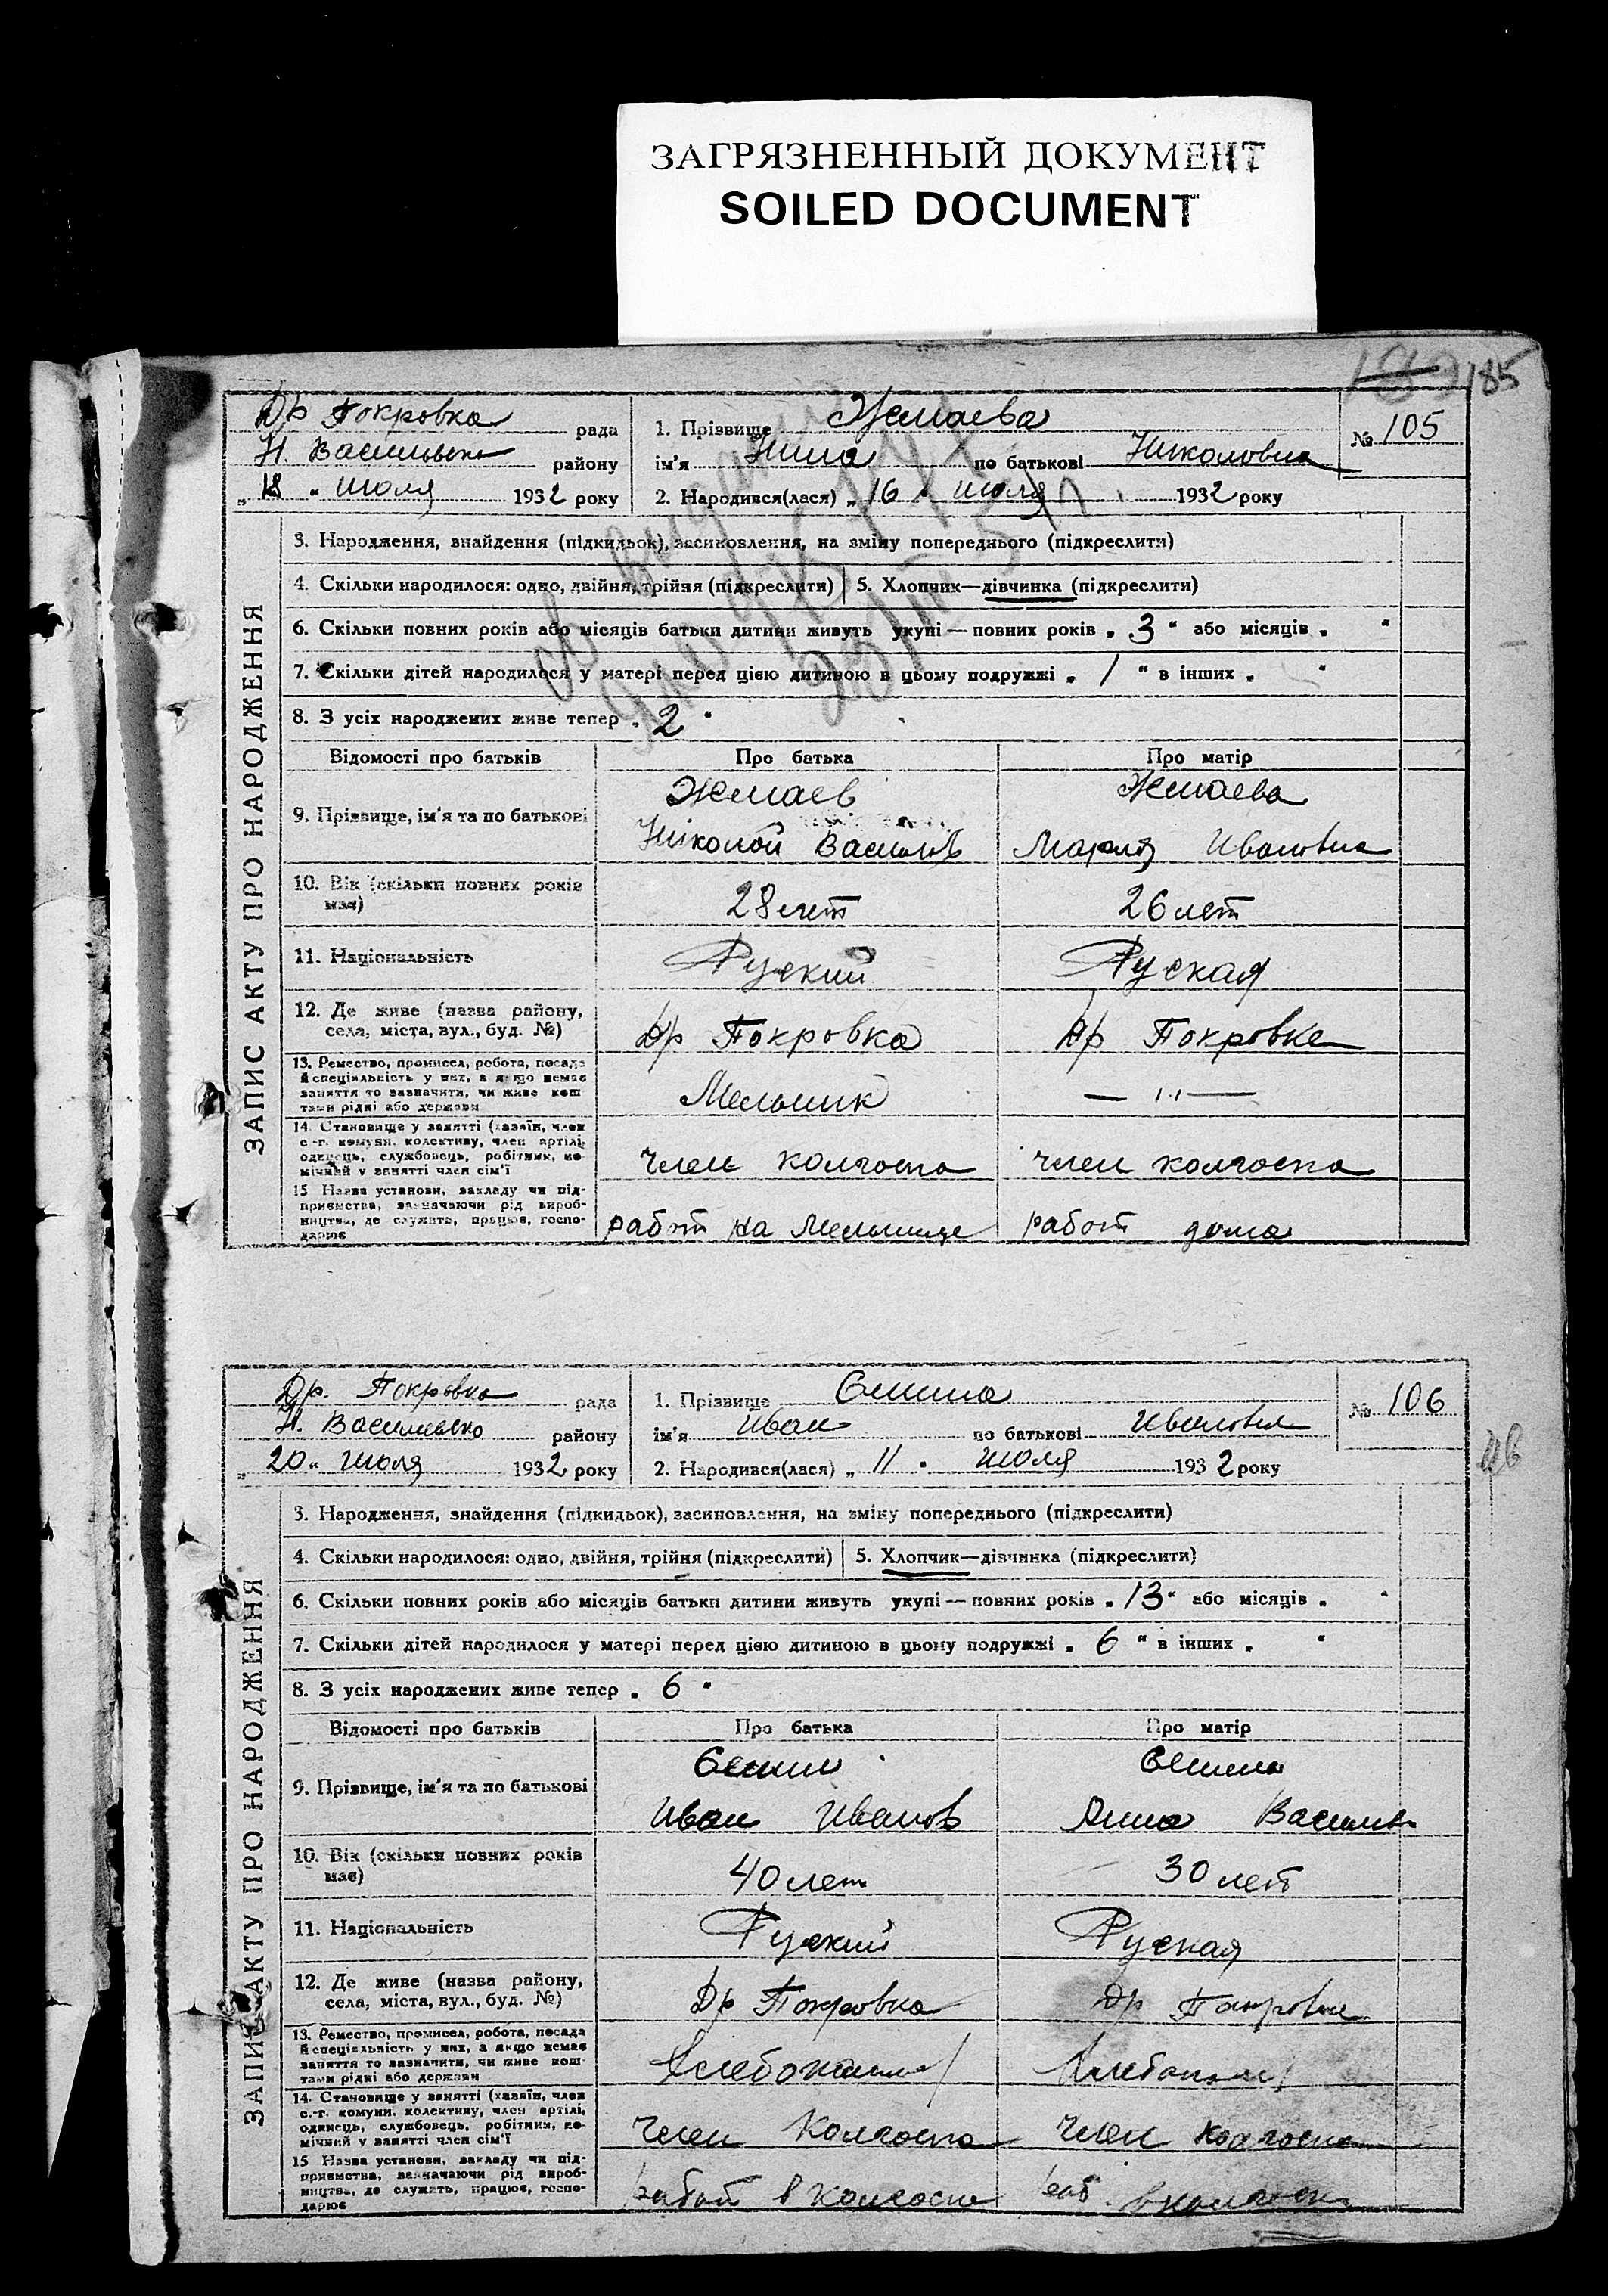 ЗАГРЯЗНЕННЫЙ ДОКУМЕНТ
SOILED DOCUMENT
185
Др Покровка рада
Н. Васильевка району
„18“ июля 1932 року
1. Прізвище
ім'я Нина по батькові Николовна
2. Народився(лася) „16“ июля 1932 року
№ 105
ЗАПИС АКТУ ПРО НАРОДЖЕННЯ
3. Народження, знайдення (підкидьок), засиновлення, на зміну попереднього (підкреслити)
4. Скільки народилося: одно, двійня, трійня (підкреслити) 5. Хлопчик—дівчинка (підкреслити)
6. Скільки повних років або місяців батьки дитини живуть укупі — повних років „3“ або місяців „ “
7. Скільки дітей народилося у матері перед цією дитиною в цьому подружжі „1“ в інших „ “
8. З усіх народжених живе тепер „2“
Відомості про батьків Про батька Про матір
9. Прізвище, ім'я та по батькові
Николой Васильов Мария Ивановна
10. Вік (скільки повних років має) 28 лет 26 лет
11. Національність Руский Руская
12. Де живе (назва району, села, міста, вул., буд. №) Др Покровка Др Покровке
13. Ремество, промисел, робота, посада й спеціяльність у них, а якщо немає заняття то зазначити, чи живе коштами рідні або держави Мельник — ״ —
14. Становище у занятті (хазяїн, член с.-г. комуни, колективу, член артілі, одинець, службовець, робітник, помічний у занятті член сім'ї член колгоспа член колгоспа
15 Назва установи, закладу чи підприємства, зазначаючи рід виробництва, де служить, працює, господарює работ на мельнице работ дома
Др. Покровка рада
Н. Васильевко району
„20“ июля 1932 року
1. Прізвище Єшина
ім'я Иван по батькові Ивановня
2. Народився(лася) „11“ июля 1932 року
№ 106
ЗАПИС АКТУ ПРО НАРОДЖЕННЯ
3. Народження, знайдення (підкидьок), засиновлення, на зміну попереднього (підкреслити)
4. Скільки народилося: одно, двійня, трійня (підкреслити) 5. Хлопчик—дівчинка (підкреслити)
6. Скільки повних років або місяців батьки дитини живуть укупі — повних років „13“ або місяців „ “
7. Скільки дітей народилося у матері перед цією дитиною в цьому подружжі „6“ в інших „ “
8. З усіх народжених живе тепер „6“
Відомості про батьків Про батька Про матір
Єшин Єшина
9. Прізвище, ім'я та по батькові
Иван Иванов Анна Василив
10. Вік (скільки повних років має) 40 лет 30 лет
11. Національність Руский Руская
12. Де живе (назва району, села, міста, вул., буд. №) Др Покровка Др Покровке
13. Ремество, промисел, робота, посада й спеціяльність у них, а якщо немає заняття то зазначити, чи живе коштами рідні або держави
14. Становище у занятті (хазяїн, член с.-г. комуни, колективу, член артілі, одинець, службовець, робітник, помічний у занятті член сім'ї член колгоспа член колгоспа
15 Назва установи, закладу чи підприємства, зазначаючи рід виробництва, де служить, працює, господарює работ в колгоспе раб. в колгоспе